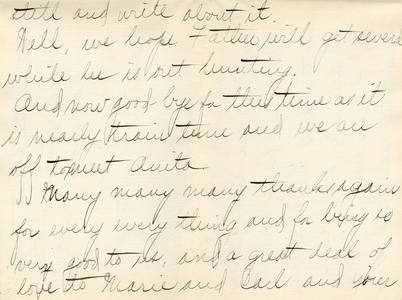 still and write about it.
Well, we hope Father will get several
while he is out hunting.
And now good bye for this time as it
is nearly train time and we are
off to meet Anita
Many many many thanks again
for every every thing and for being so
very good to us, and a great deal of
love to Marie and Carl and your